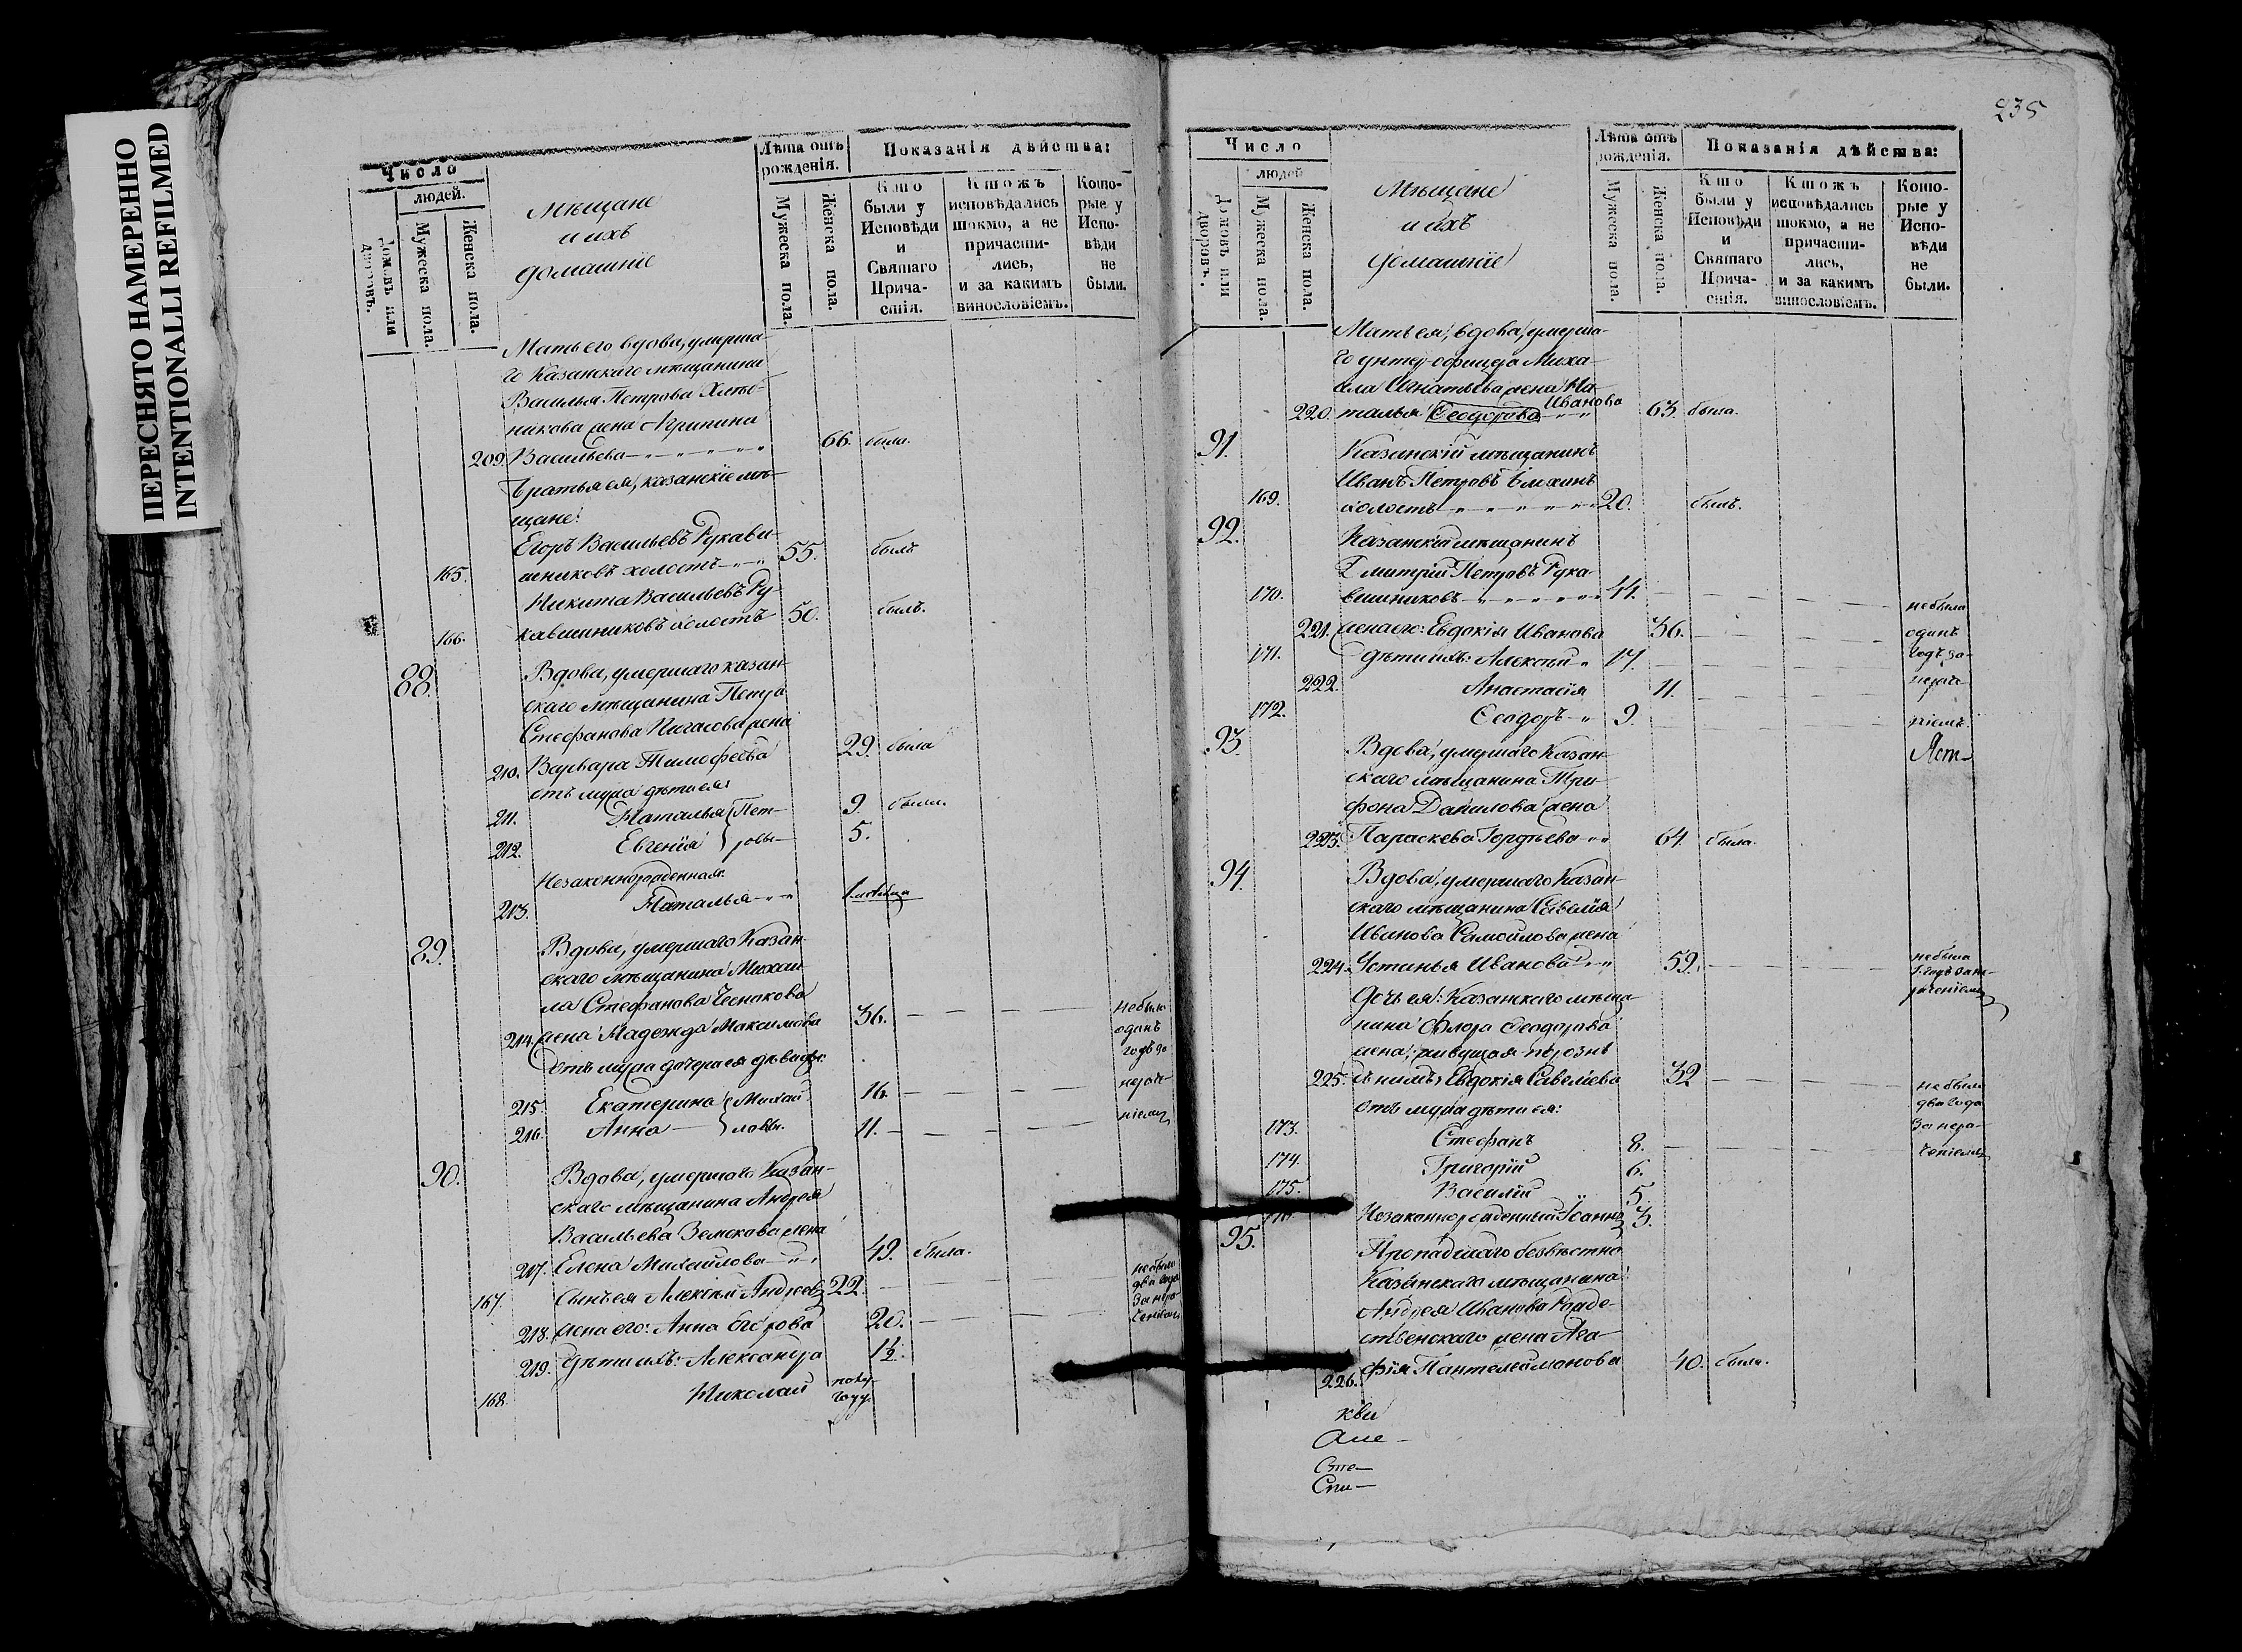 ПЕРЕСНЯТО НАМЕРЕННО
INTENTIONALLI REFILMED
Число
людей.
Домовъ или дворовъ.
Мужеска пола.
Женска пола.
Мѣщане
и ихъ
домашніе
Лѣта отъ рожденія.
Мужеска пола.
Женска пола.
Показанія дѣйства:
Кто были у Исповѣди и Святаго Причастія.
Ктожъ исповѣдались токмо, а не причастились, и за какимъ винословіемъ.
Которые у Исповѣди не были.
Мать его вдова, умерша-
го Казанскаго мѣщанина
Василья Петрова
никова жена Агрипина
209. Васильева 66. была.
Братья ея, казанскіе мѣ-
щане:
Егоръ Васильевъ Рукави-
165. шниковъ холостъ 55. былъ
Никита Васильевъ Ру-
166. кавишниковъ холостъ 50. былъ.
88. Вдова, умершаго казан-
скаго мѣщанина Петра
Стефанова жена
210. Варвара Тимофеева 29. была
отъ мужа дѣти ея:
211. Наталья Пет- 9 были.
212. Евгенія ровы 5.
Незаконнорожденная:
213. Наталья
89. Вдова, умершаго Казан-
скаго мѣщанина Михаи-
ла Стефанова Чеснокова
214. жена Надежда Максимова 36. не были
одинъ
годъ за
отъ мужа дочери ея дѣвицы:
215. Екатерина Михай- 16. нерач-
216. Анна ловы. 11. ніемъ
90. Вдова, умершаго Казан-
скаго мѣщанина Андрея
Васильева Земскова жена
217. Елена Михайлова 49. была.
167. Сынъ ея Алексѣй Андреевъ 22. не были
два года
за нера-
ченіемъ
218. жена его: Анна Егорова 20.
219. дѣти ихъ: Александра 1½.
168. Николай полу-
году.
235
Число
людей
Домовъ или дворовъ.
Мужеска пола.
Женска пола.
Мѣщане
и ихъ
домашніе
Лѣта отъ рожденія.
Мужеска пола.
Женска пола.
Показанія дѣйства:
Кто были у Исповѣди и Святаго Причастія.
Ктожъ исповѣдались токмо, а не причастились, и за какимъ винословіемъ.
Которые у Исповѣди не были.
Мать ея, вдова, умерша-
го унтер-офицера Миха-
ила Игнатьева жена На-
220. талья Ѳеодорова Иванова 63. была.
91. Казанскій мѣщанинъ
Иванъ Петровъ
169. холостъ 20. былъ.
92. Казанскій мѣщанинъ
Дмитрій Петровъ Рука-
170. вишниковъ 44. не были
221. жена его: Евдокія Иванова 36. одинъ
171. дѣти ихъ: Алексѣй 17. годъ за-
222. Анастасія 11. нераче-
172. Ѳеодоръ 9. ніемъ
93. Вдова, умершаго Казан-
скаго мѣщанина Три-
фона Данилова жена
223. Параскева Гордѣева 64. была.
94. Вдова, умершаго Казан-
скаго мѣщанина Савелія
Иванова Самойлова жена
224. Устинья Иванова 59. не была
1. годъ за не-
раченіемъ
Дочь ея: Казанскаго мѣща-
нина Флора Ѳеодорова
жена, живущая порознь
225. съ нимъ, Евдокія Савельева 32 не были
два года
отъ мужа дѣти ея: за нера-
173. Стефанъ 8. ченіемъ
174. Григорій 6.
175. Василій 5.
176. Незаконнорожденный Іоаннъ 3.
95. Пропавшаго безвѣстно
Казанскаго мѣщанина
Андрея Иванова Рожде-
ственскаго жена Ага-
226. фія Пантелеимонова 40. была.
Сте-
Спи-